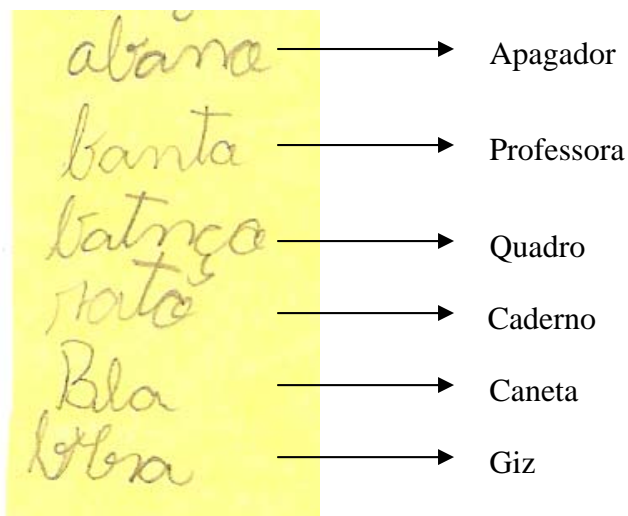 abano Apagador
banta Professora
batnço Quadro
rato Caderno
Bla Caneta
Giz